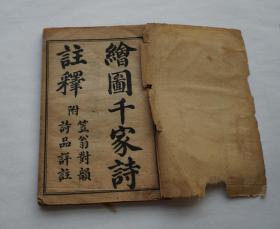 繪圖千家詩
註釋
附
笠翁對韻
詩品評註